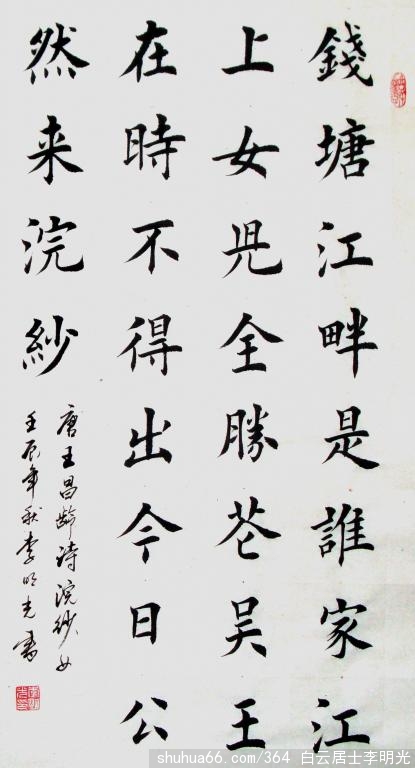 錢塘江畔是誰家江
上女兒全勝花吴王
在時不得出今日公
然来浣紗
唐王昌齡詩浣紗女
壬辰年秋李明光書
shuhua66.com/364 白云居士李明光